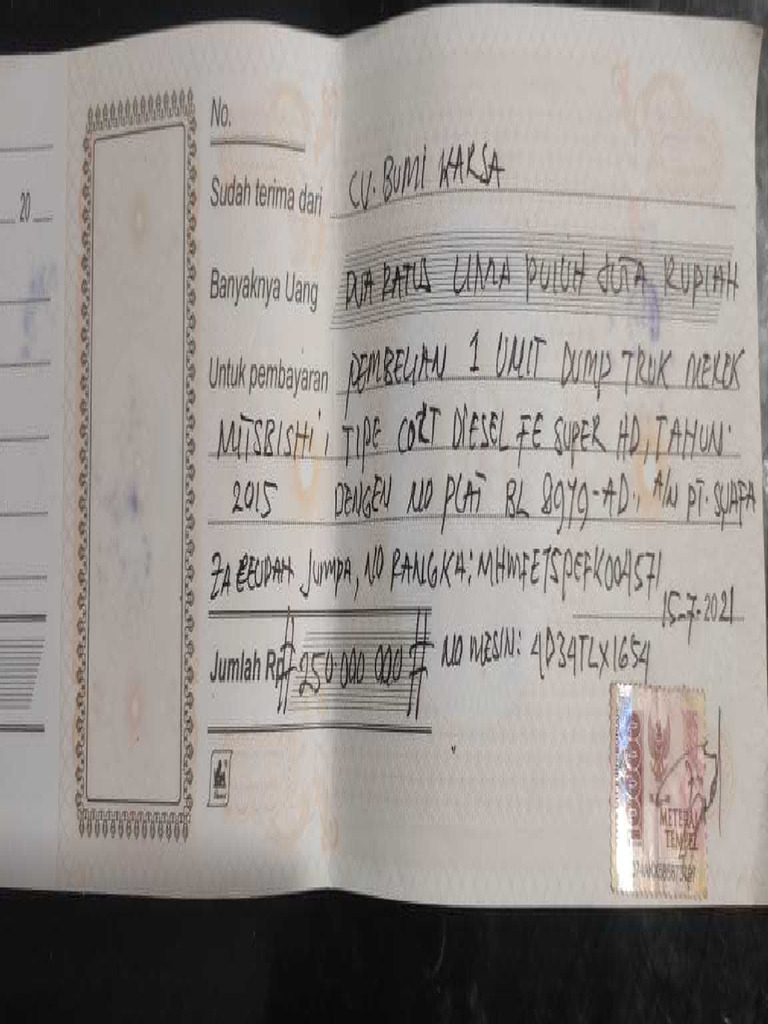 No.
20
Sudah terima dari CV. BUMI KARSA
Banyaknya Uang DUA RATUS LIMA PULUH JUTA RUPIAH
Untuk pembayaran PEMBELIAN 1 UNIT DUMP TRUK MEREK
MITSBISHI, TIPE COLT DIESEL FE SUPER HD, TAHUN:
2015 DENGEN NO PLAT BL 8979-AD, A/N PT. SYAFA
ZA Jumpa, NO RANGKA:
15-7-2021
Jumlah Rp # 250.000 000 # NO MESIN: 4D34TLX1654
METERAI
TEMPEL